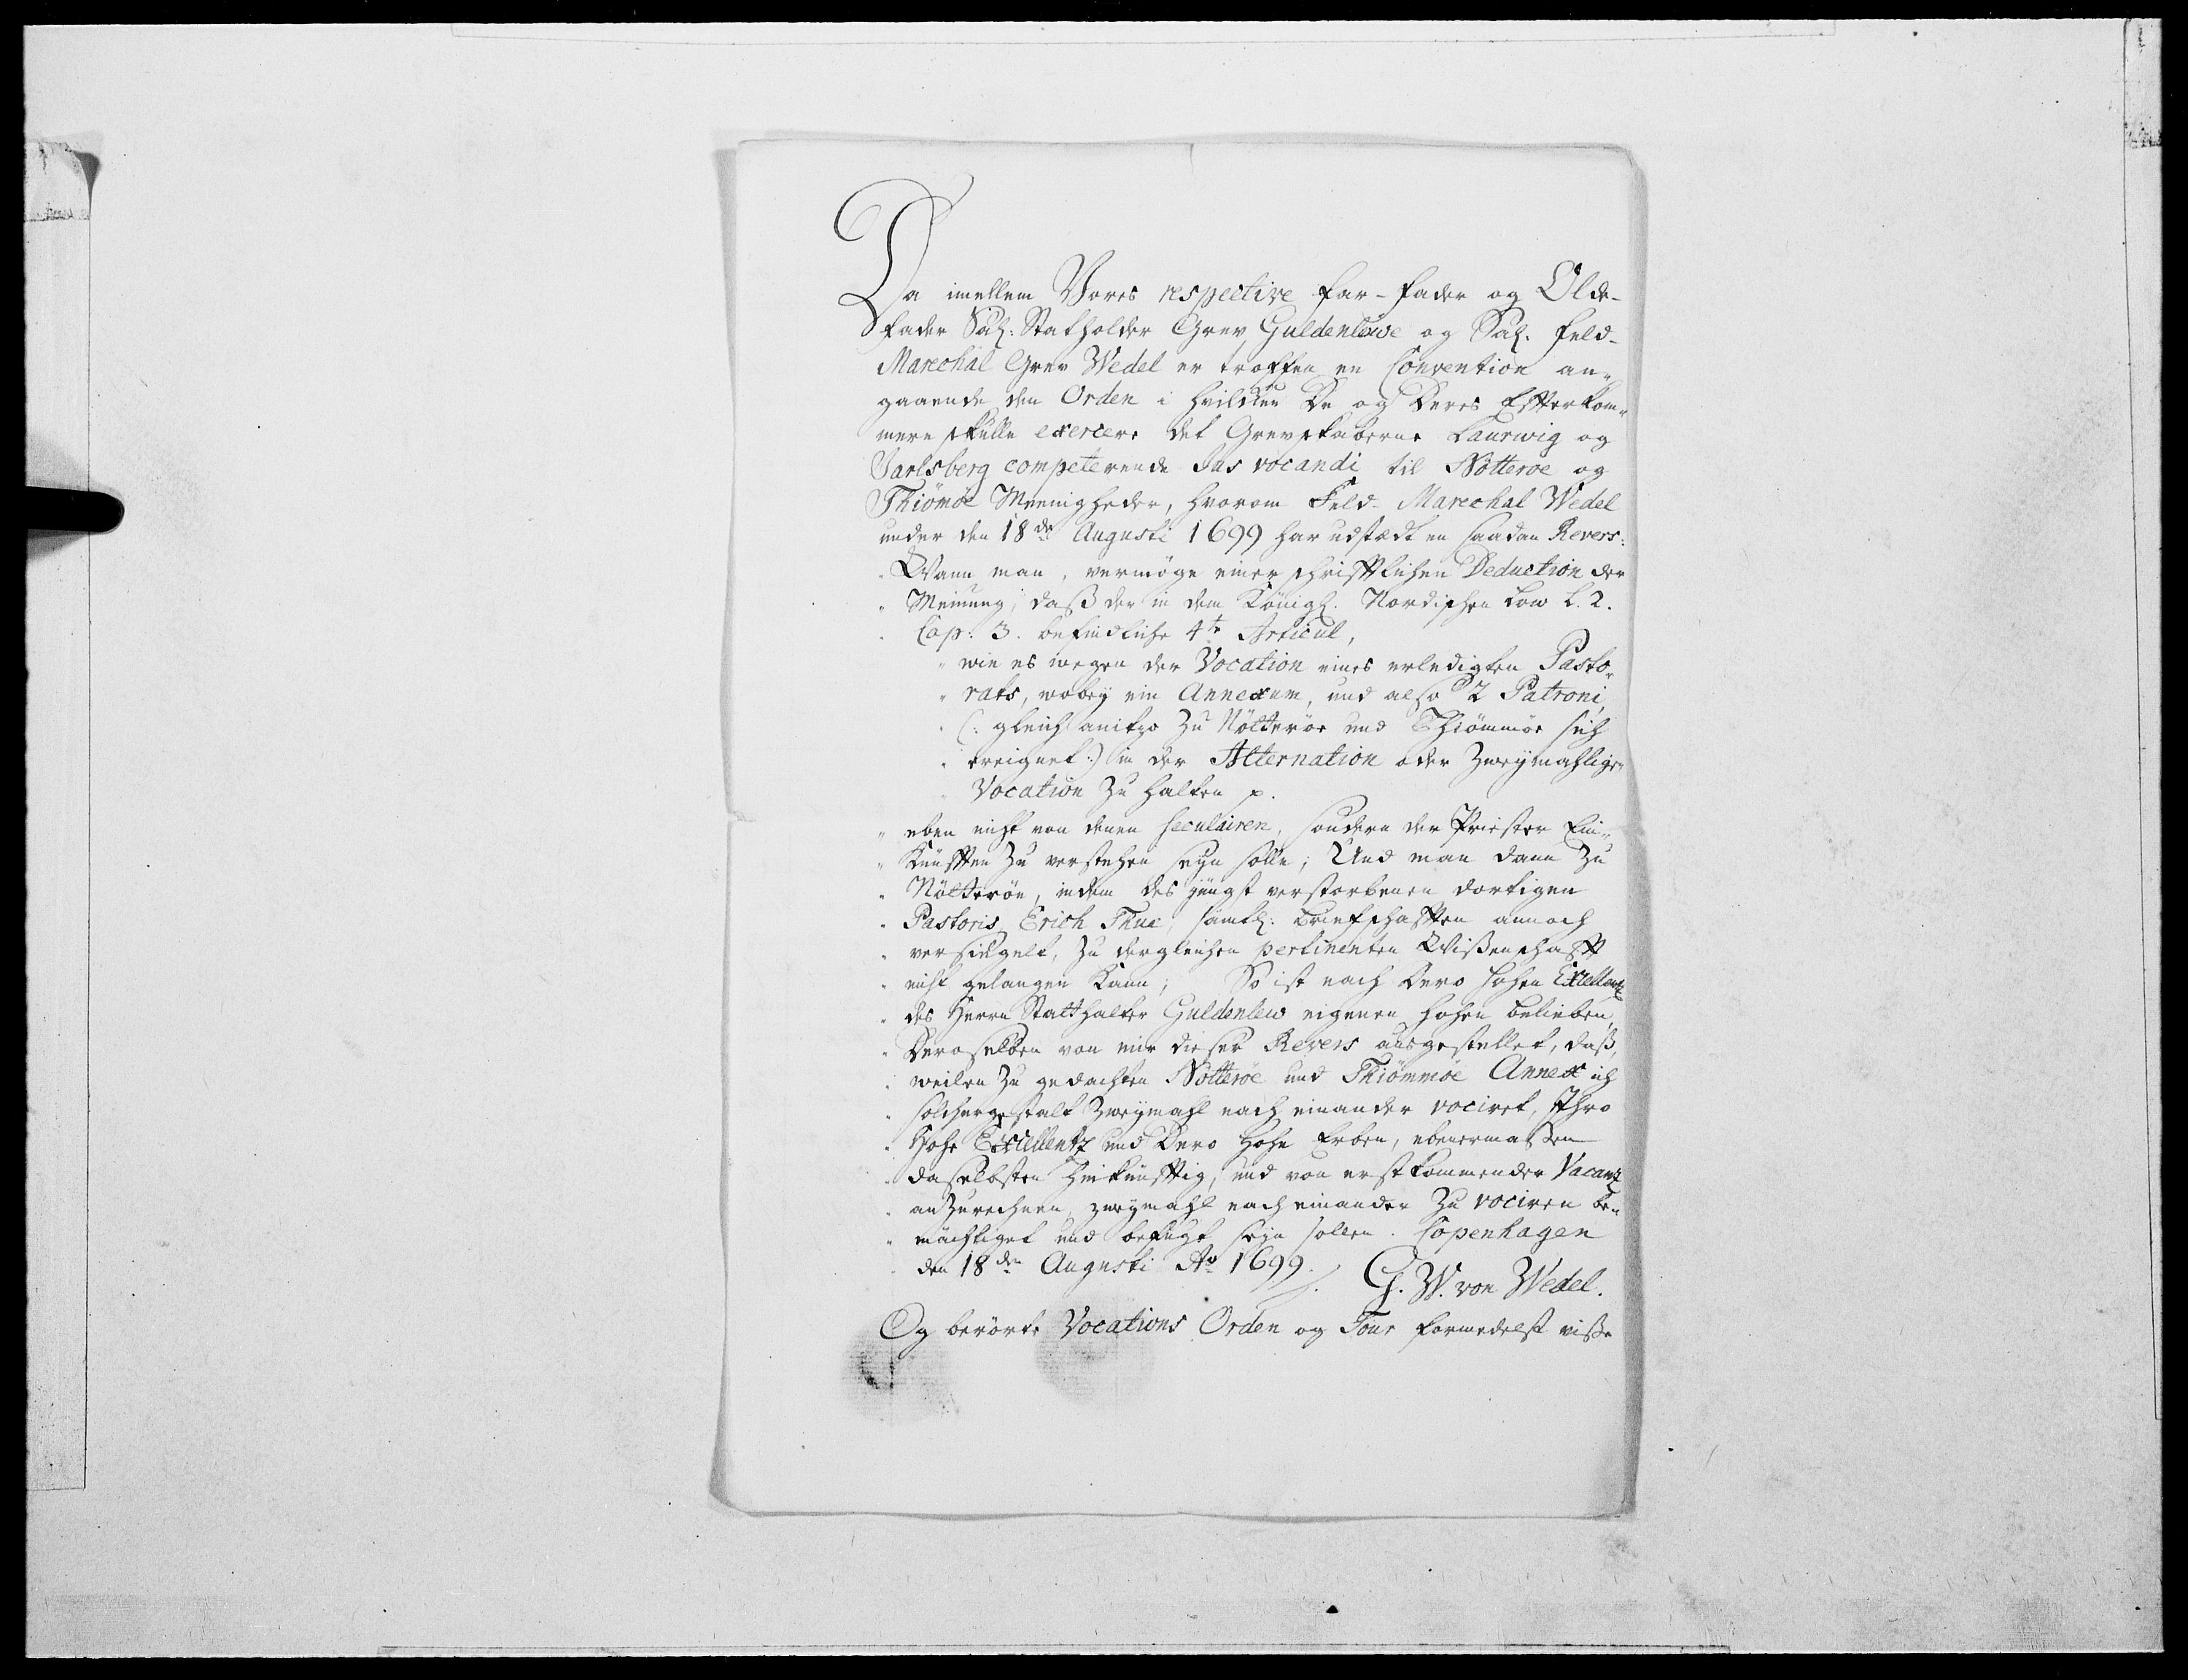 Da imellem Vores respective Far-Fader og Olde-
Fader Sal: Statholder Grev Guldenlewe og Sal. Feld-
Marechal Grev Wedel er troffen en Convention an-
gaaende den Orden i hvilcken De og Deres Efterkom-
mere skulle exercere det Grevskaberne Laurwig og
Jarlsberg competerende Jus vocandi til Nötteröe og
Thiömöe Meenigheder, hvorom Feld-Marechal Wedel
under den 18de Augusti 1699 har udstædt en saadan Revers:
" Wann man, vermöge einer schrifftlichen Deduction der
" Meinung, daß der in dem Königl. Nordischen Low L. 2.
" Cap: 3. befindliche 4te Articul,
" wie es wegen der Vocation eines erledigten Pasto-
" rats, wobey ein Annexum, und also 2 Patroni,
" (: gleich anitzo zu Nötteröe und Thiömmöe sich
" ereignet :) in der Alternation oder Zweymahlige
" Vocation zu halten p.
" eben nicht von denen seculairen, sondern der Priester Ein-
" Künfften zu verstehen seyn solle; Und man dann zu
" Nötteröe, indem des jüngst verstorbenen dortigen
" Pastoris Erich Thue, sämtl: Briefschafften annoch
" versiegelt, zu dergleichen pertinenten Wißenschafft
" nicht gelangen kann; So ist nach Dero hohen Excellentz
" des Herrn Statthalter Guldenlew eigenen hohen belieben,
" Deroselben von mir dieser Revers ausgestellet, daß,
" weilen zu gedachten Nötteröe und Thiömmöe Annex ich
" solchergestalt zweymahl nach einander vociret, Ihro
" Hohe Excellentz und Dero Hohe Erben, ebenermaßen
" daselbsten hinkünfftig, und von erstkommender Vacantz
" anzurechnen, zweymahl nach einander zu vociren be-
" mächtiget und befugt seyn sollen. Copenhagen
" den 18den Augusti Ao 1699. G. W. von Wedel.
Og berörte Vocations Orden og Tour formedelst visse